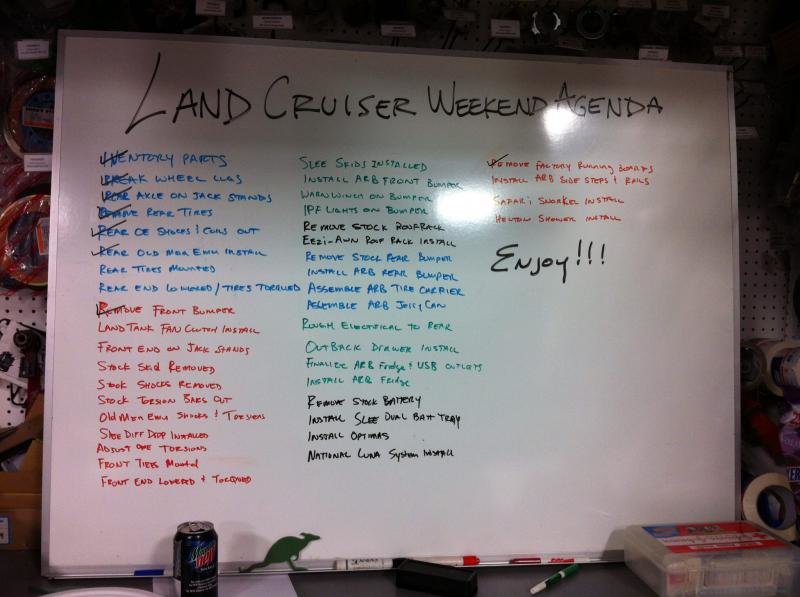 LAND CRUISER WEEKEND AGENDA
INVENTORY PARTS
BREAK WHEEL LUGS
REAR AXLE ON JACK STANDS
REMOVE REAR TIRES
REAR OE SHOCKS & COILS OUT
REAR OLD MAN EMU INSTALL
REAR TIRES MOUNTED
REAR END LOWERED/TIRES TORQUED
REMOVE FRONT BUMPER
LAND TANK FAN CLUTCH INSTALL
FRONT END ON JACK STANDS
STOCK SKID REMOVED
STOCK SHOCKS REMOVED
STOCK TORSION BARS OUT
OLD MAN EMU SHOCKS & TORSIONS
SLEE DIFF DROP INSTALLED
ADJUST OME TORSIONS
FRONT TIRES MOUNTED
FRONT END LOWERED & TORQUED
SLEE SKIDS INSTALLED
INSTALL ARB FRONT BUMPER
WARN WINCH ON BUMPER
IPF LIGHTS ON BUMPER
REMOVE STOCK ROOFRACK
EEZI-AWN ROOF RACK INSTALL
REMOVE STOCK REAR BUMPER
INSTALL ARB REAR BUMPER
ASSEMBLE ARB TIRE CARRIER
ASSEMBLE ARB JERRY CAN
ROUGH ELECTRICAL TO REAR
OUTBACK DRAWER INSTALL
FINALIZE ARB FRIDGE & USB OUTLETS
INSTALL ARB FRIDGE
REMOVE STOCK BATTERY
INSTALL SLEE DUAL BATT TRAY
INSTALL OPTIMAS
NATIONAL LUNA SYSTEM INSTALL
REMOVE FACTORY RUNNING BOARDS
INSTALL ARB SIDE STEPS & RAILS
SAFARI SNORKEL INSTALL
HELTON SHOWER INSTALL
ENJOY!!!